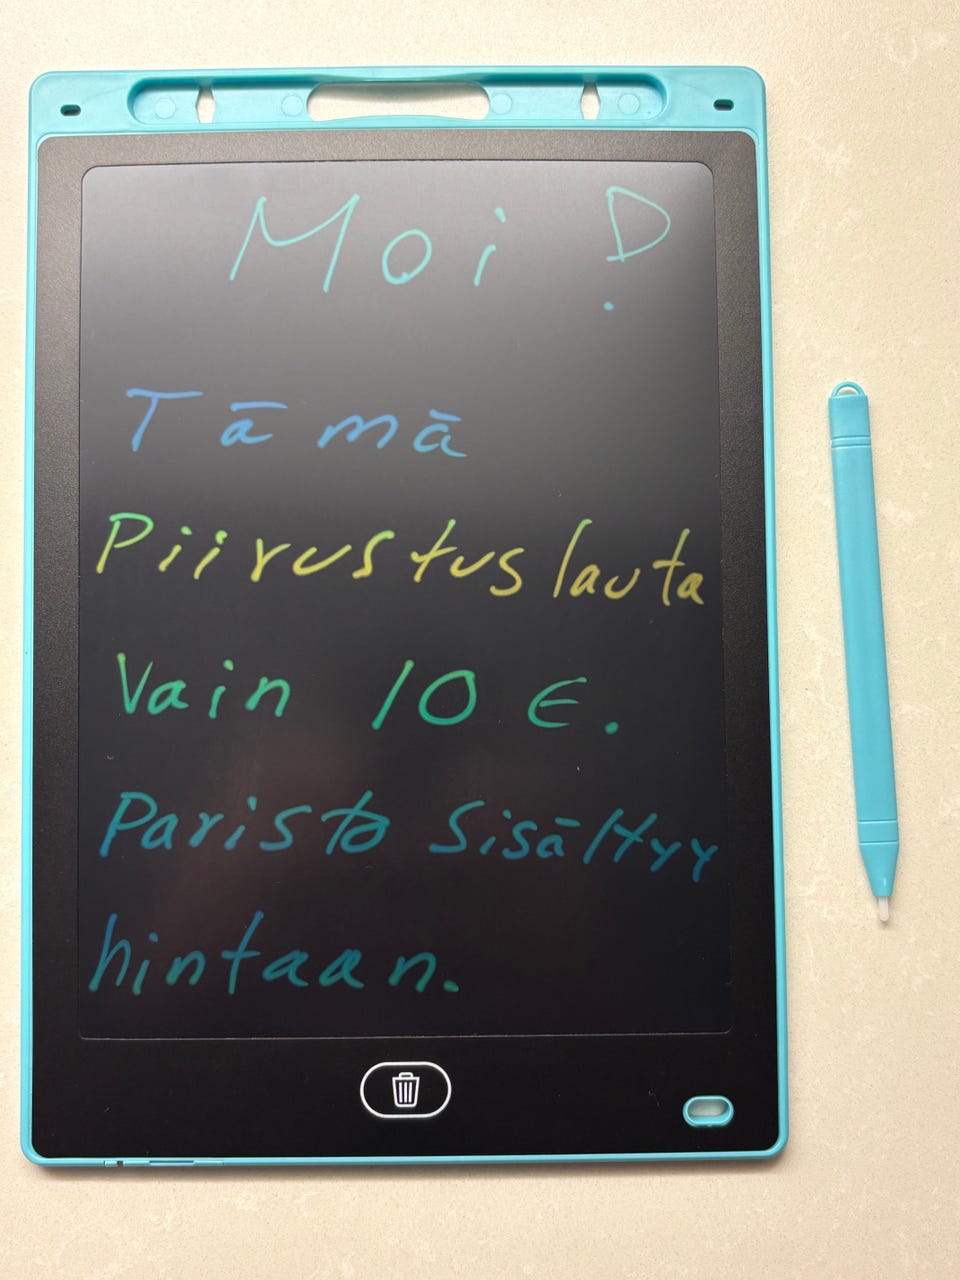 Moi !
Tämä
Piirustus lauta
Vain 10 €.
Paristo sisältyy
hintaan.